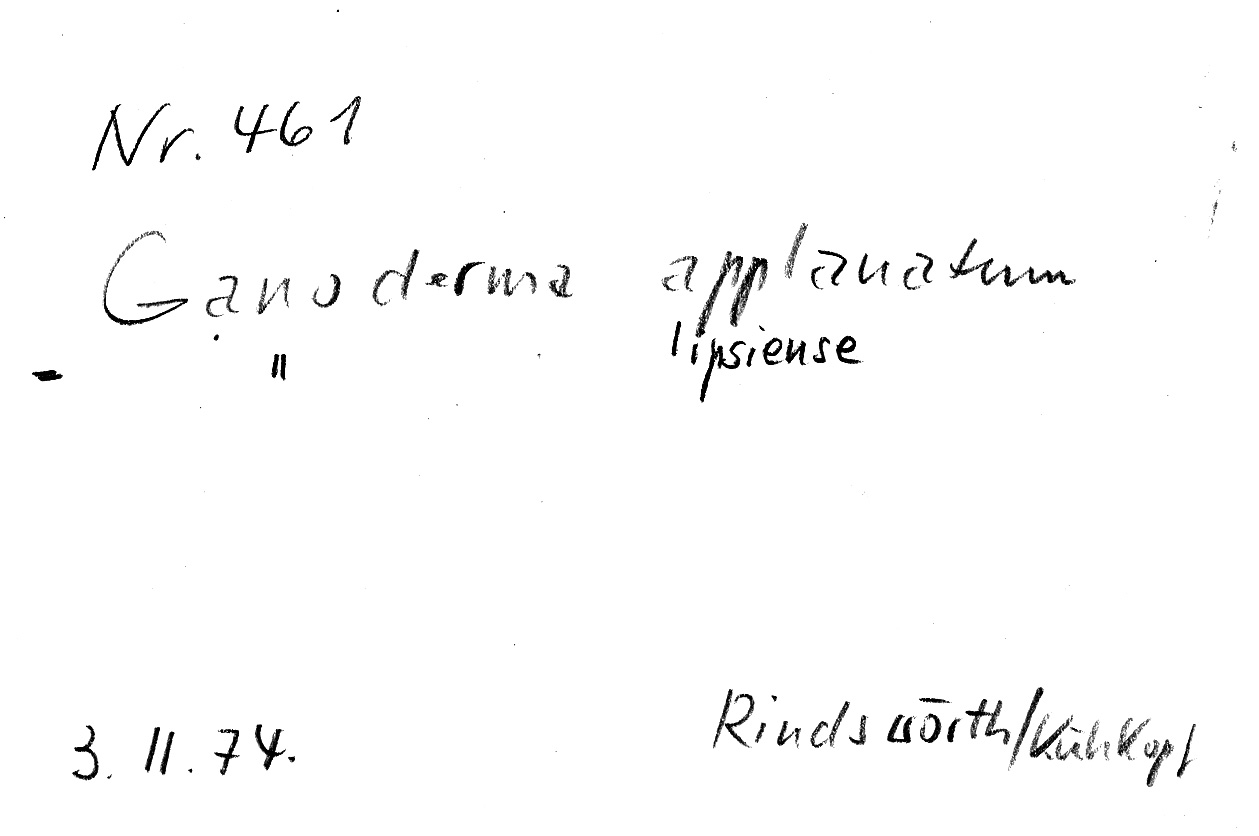 Nr. 461
Ganoderma applanatum
" lipsiense
3. II. 74. Rindswörth/Kühkopf